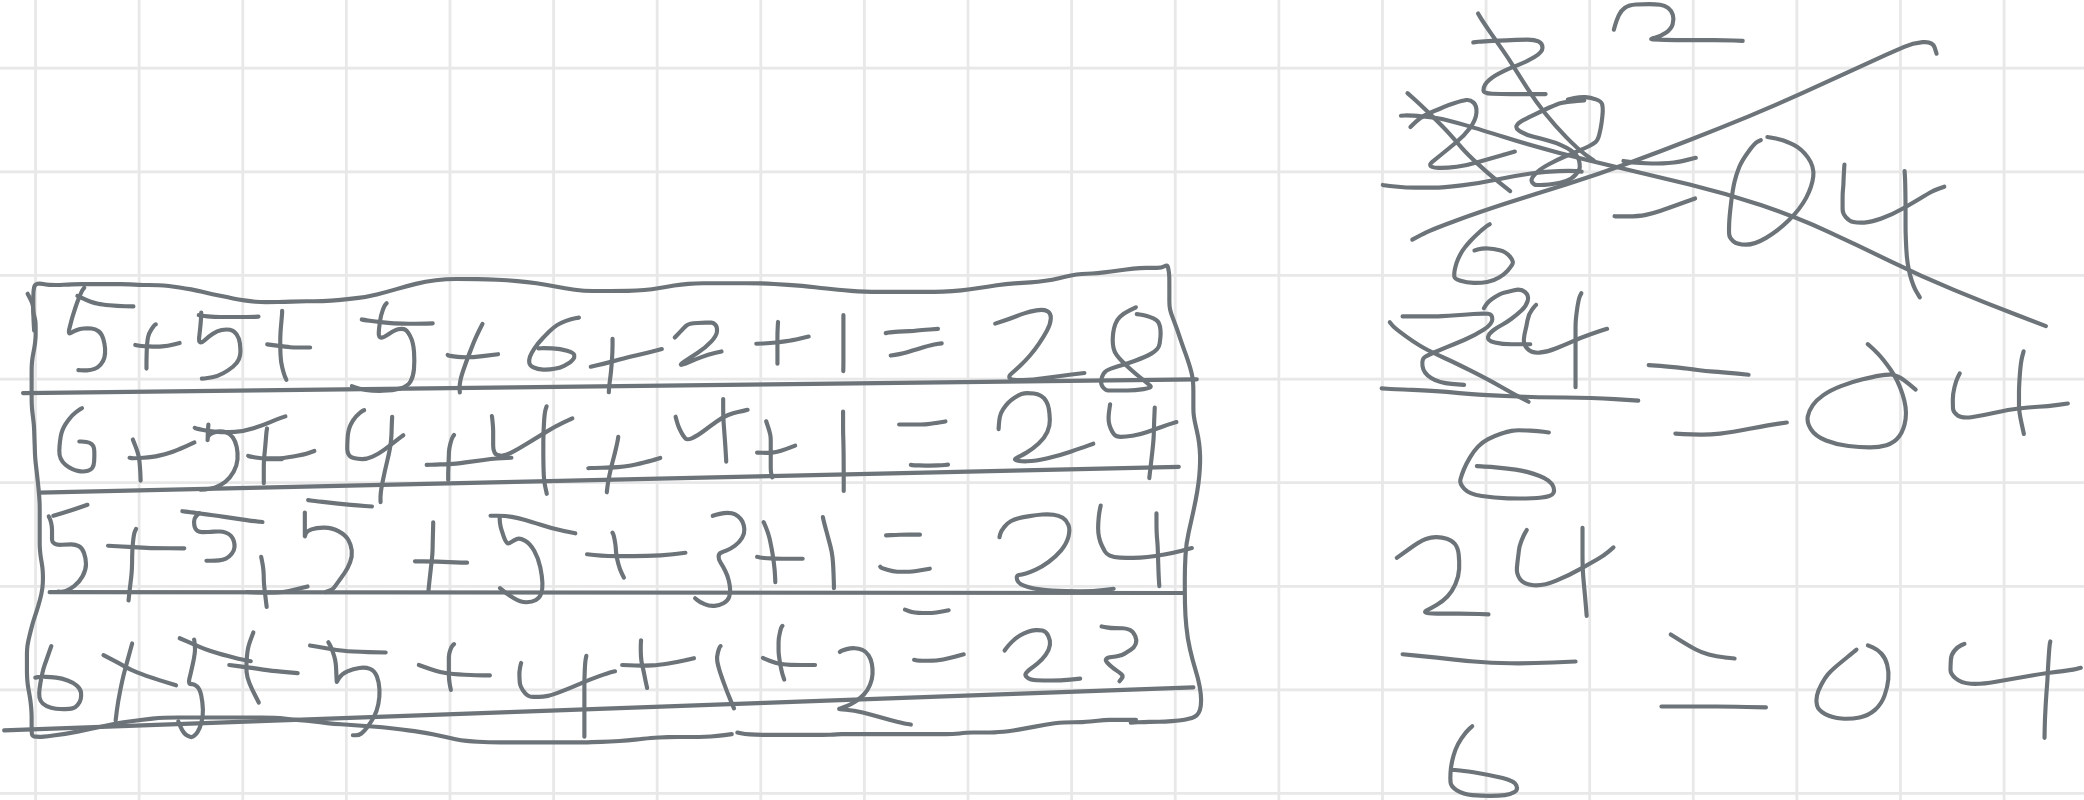 5+5+5+6+2+1=28
6+5+4+4+4+1=24
5+5+5+5+3+1=24
6+5+5+4+1+2=23
2
=04
6
24
=04
6
24
=04
6